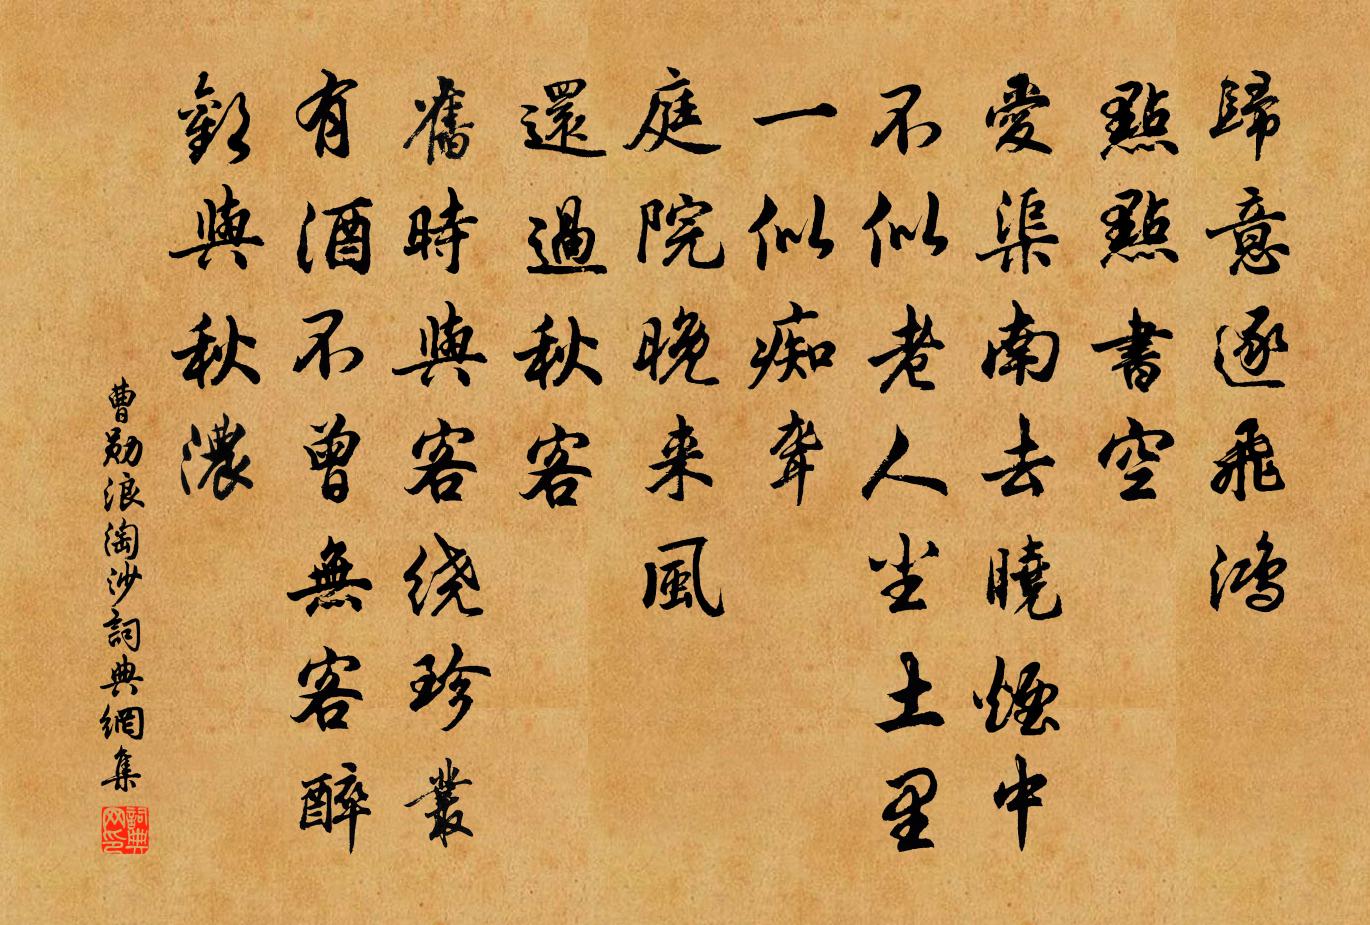 歸意逐飛鴻
點點書空
愛渠南去曉煙中
不似老人坐土里
一似痴聾
庭院晚来風
還過秋客
舊時與客绕珍叢
有酒不曾無客醉
歡與秋濃
曹勛浪淘沙詞典網集
詞典网印